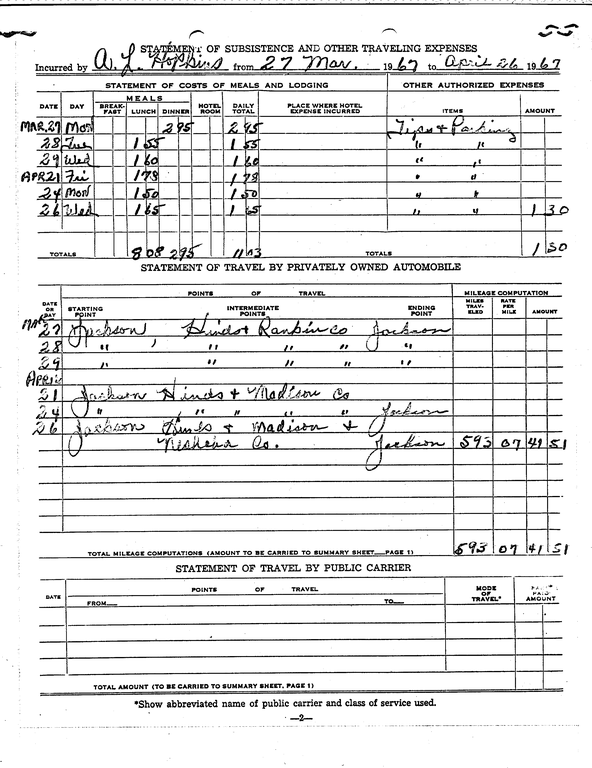 STATEMENT OF SUBSISTENCE AND OTHER TRAVELING EXPENSES
Incurred by A. L. Hopkins from 27 Mar. 1967 to April 26 1967
STATEMENT OF COSTS OF MEALS AND LODGING OTHER AUTHORIZED EXPENSES
DATE DAY MEALS BREAK-FAST LUNCH DINNER HOTEL ROOM DAILY TOTAL PLACE WHERE HOTEL EXPENSE INCURRED ITEMS AMOUNT
MAR. 27 Mon 2 95 2 95 Tips & Parking
28 Tue 1 55 1 55 " "
29 Wed 1 60 1 60 " "
APR 21 Fri 1 78 1 78 " "
24 Mon 1 50 1 50 " "
26 Wed 1 65 1 65 " " 1 30
TOTALS 8 08 2 95 11 03 TOTALS 1 30
STATEMENT OF TRAVEL BY PRIVATELY OWNED AUTOMOBILE
DATE OR DAY POINTS OF TRAVEL MILEAGE COMPUTATION
STARTING POINT INTERMEDIATE POINTS ENDING POINT MILES TRAV-ELED RATE PER MILE AMOUNT
Mar
27 Jackson Hinds & Rankin Co Jackson
28 " " " " "
29 " " " " "
April
21 Jackson Hinds & Madison Co
24 " " " " " Jackson
26 Jackson Hinds & Madison &
Neshoba Co. Jackson 593 07 41 51
TOTAL MILEAGE COMPUTATIONS (AMOUNT TO BE CARRIED TO SUMMARY SHEET—PAGE 1) 593 07 41 51
STATEMENT OF TRAVEL BY PUBLIC CARRIER
DATE POINTS OF TRAVEL MODE OF TRAVEL* AMOUNT
FROM TO
TOTAL AMOUNT (TO BE CARRIED TO SUMMARY SHEET, PAGE 1)
*Show abbreviated name of public carrier and class of service used.
—2—